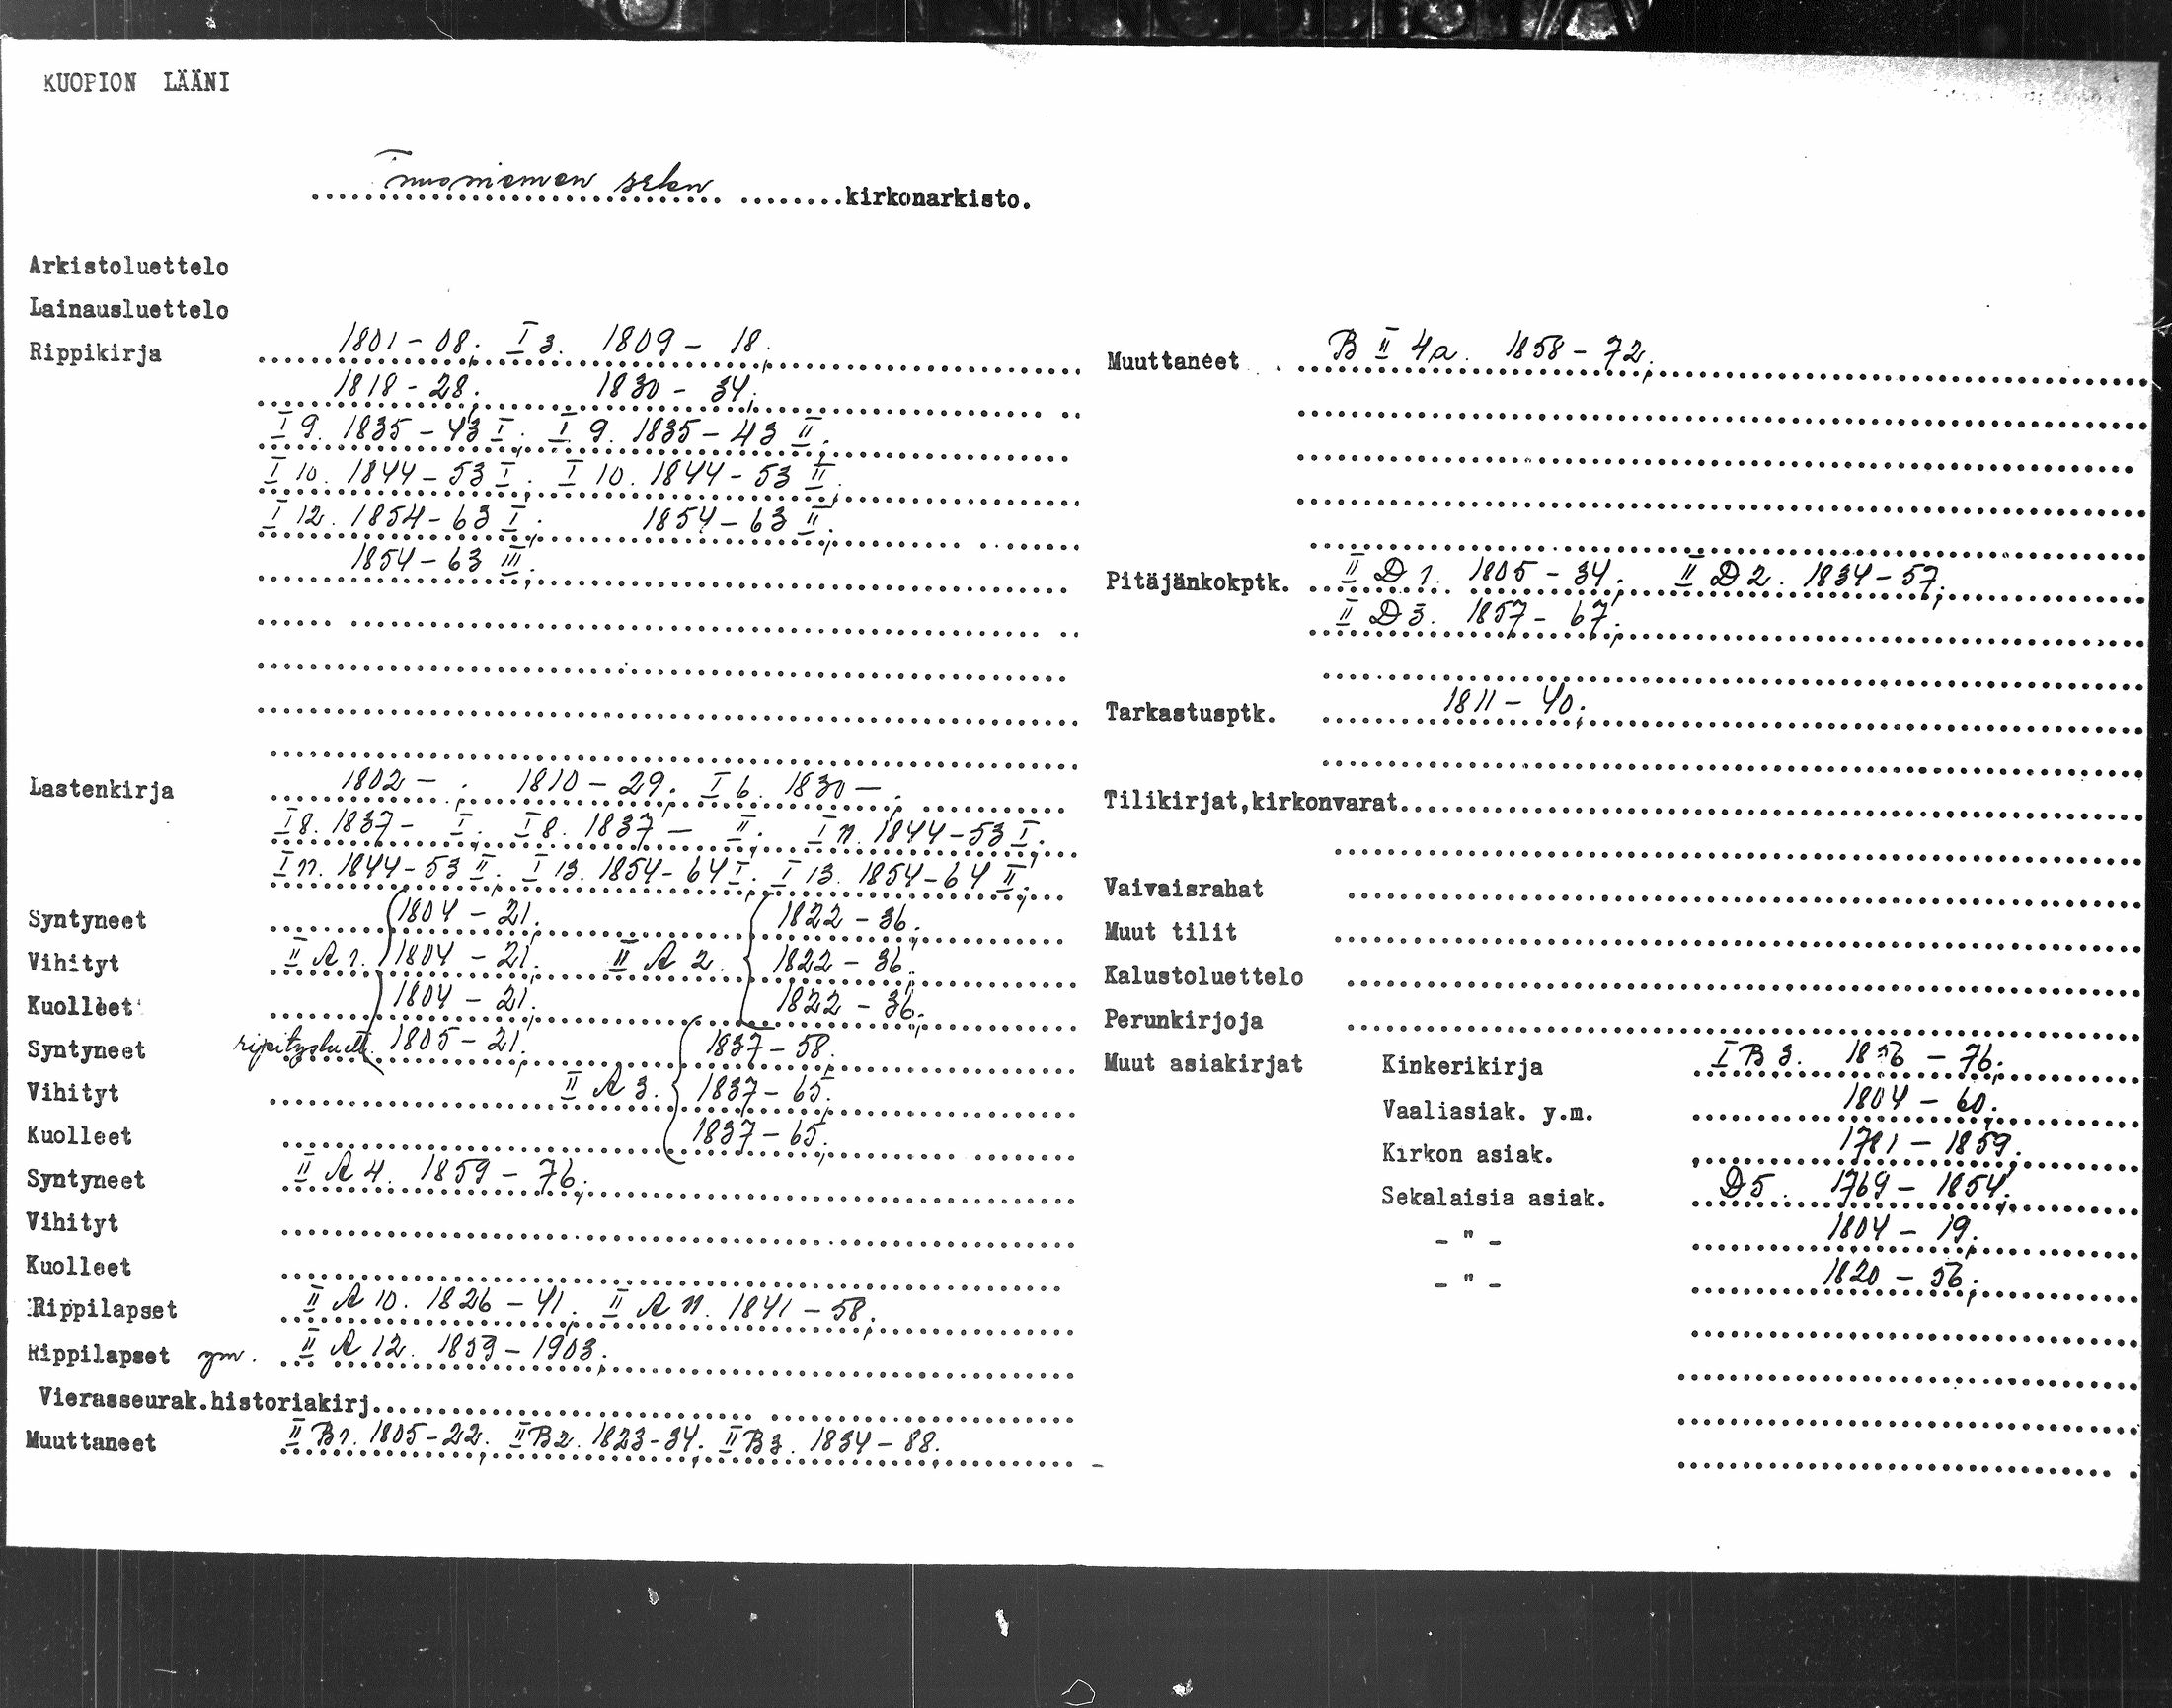 KUOPION LÄÄNI
Tuusniemen srkn kirkonarkisto.
Arkistoluettelo
Lainausluettelo
Rippikirja 1801-08; I 3. 1809-18;
1818-28; 1830-34;
I 9. 1835-43 I; I 9. 1835-43 II;
I 10. 1844-53 I; I 10. 1844-53 II;
I 12. 1854-63 I; 1854-63 II;
1854-63 III;
Lastenkirja 1802- ; 1810-29; I 6. 1830- ;
I 8. 1837- I; I 8. 1837- II; I 11. 1844-53 I;
I 11. 1844-53 II; I 13. 1854-64 I; I 13. 1854-64 II;
Syntyneet 1804-21; 1822-36;
Vihityt II A 1. 1804-21; II A 2. 1822-36;
Kuolleet 1804-21; 1822-36;
Syntyneet ripitysluett. 1805-21; 1837-58;
Vihityt II A 3. 1837-65;
Kuolleet 1837-65;
Syntyneet II A 4. 1859-76;
Vihityt
Kuolleet
Rippilapset II A 10. 1826-41; II A 11. 1841-58;
Rippilapset ym. II A 12. 1859-1903;
Vierasseurak.historiakirj.
Muuttaneet II B 1. 1805-22; II B 2. 1823-34; II B 3. 1834-88;
Muuttaneet B II 4a. 1858-72;
Pitäjänkokptk. II D 1. 1805-34; II D 2. 1834-57;
II D 3. 1857-67;
Tarkastusptk. 1811-40;
Tilikirjat,kirkonvarat
Vaivaisrahat
Muut tilit
Kalustoluettelo
Perunkirjoja
Muut asiakirjat Kinkerikirja I B 3. - 76;
Vaaliasiak. y.m. 1804-60;
Kirkon asiak. 1781-1859;
Sekalaisia asiak. D 5. 1769-1854;
- " - 1804-19;
- " - 1820-56;